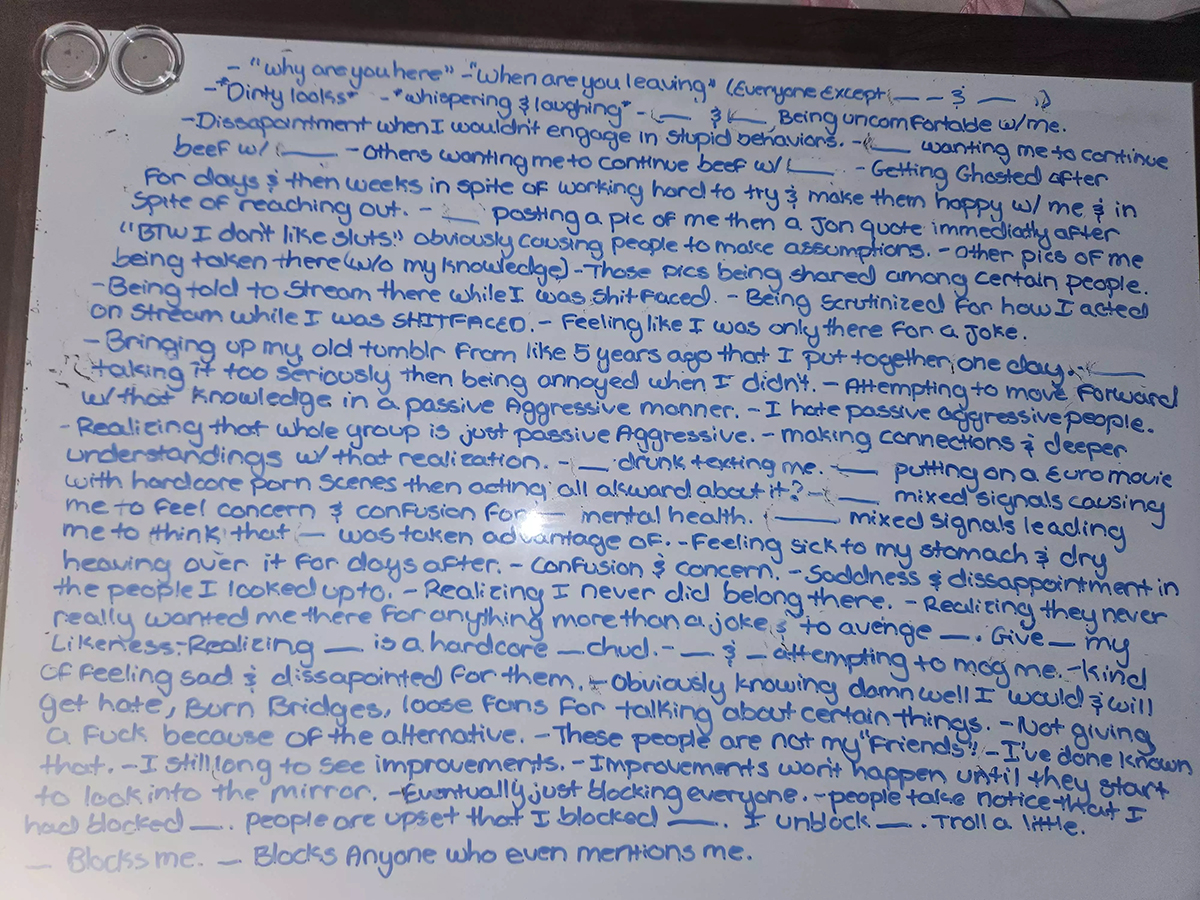 - "why are you here" - "when are you leaving" (Everyone Except ___ - & ___ ")
- *Dirty looks* - *whispering & laughing* - ___ & ___ Being uncomfortable w/me.
- Dissapointment when I wouldn't engage in stupid behaviors. - ___ wanting me to continue
beef w/ ___ - Others wanting me to continue beef w/ ___ - Getting Ghosted after
for days & then weeks in spite of working hard to try & make them happy w/ me & in
Spite of reaching out. - ___ posting a pic of me then a Jon quote immediatly after
"BTW I don't like sluts." obviously causing people to make assumptions. - other pics of me
being taken there (w/o my knowledge) - Those pics being shared among certain people.
- Being told to Stream there while I was Shit Faced. - Being Scrutinized for how I acted
on Stream while I was SHITFACED. - Feeling like I was only there for a Joke.
- Bringing up my old tumblr from like 5 years ago that I put together one day. ___
talking it too seriously then being annoyed when I didn't. - Attempting to move forward
w/ that knowledge in a passive Aggressive manner. - I hate passive aggressive people.
- Realizing that whole group is just passive Aggressive. - making connections & deeper
understandings w/ that realization. - ___ drunk texting me. ___ putting on a Euro movie
with hardcore porn scenes then acting all akward about it? - ___ mixed signals causing
me to feel concern & confusion for ___ mental health. ___ mixed signals leading
me to think that ___ was taken advantage of. - Feeling sick to my stomach & dry
heaving over it for days after. - Confusion & concern. - Saddness & dissappointment in
the people I looked up to. - Realizing I never did belong there. - Realizing they never
really wanted me there for anything more than a joke & to avenge ___. Give ___ my
Likeness. - Realizing ___ is a hardcore ___ chud. - ___ & ___ attempting to mog me. - Kind
of feeling sad & dissapointed for them. - Obviously knowing damn well I would & will
get hate, Burn Bridges, loose fans for talking about certain things. - Not giving
a fuck because of the alternative. - These people are not my "Friends"! - I've done known
that. - I still long to see improvements. - Improvements won't happen until they start
to look into the mirror. - Eventually just blocking everyone. - people take notice that I
had blocked ___. people are upset that I blocked ___. I unblock ___. Troll a little.
___ Blocks me. ___ Blocks Anyone who even mentions me.